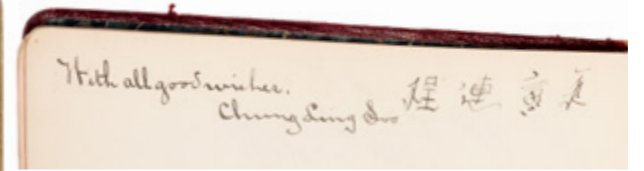 With all good wishes.
Chung Ling Soo 程連